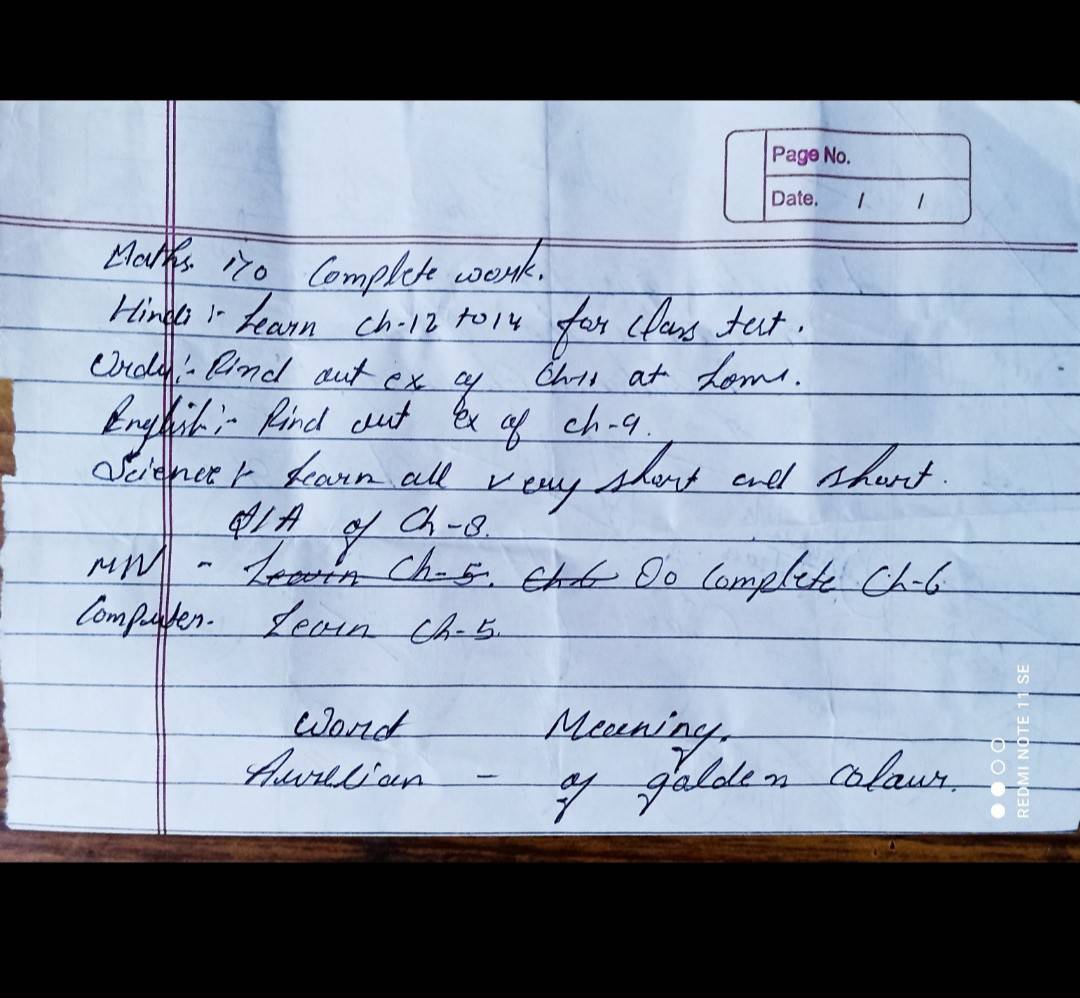 Page No.
Date. / /
Maths :- Do Complete work.
Hindi :- Learn ch-12 to 14 for class test.
Urdu :- Find out ex of Ch-11 at home.
English :- Find out ex of ch-9.
Science :- Learn all very short and short.
Q/A of Ch-8.
MW - Learn Ch-5. Ch-6 Do Complete Ch-6
Computer. Learn Ch-5.
Word Meaning.
Aurelian - of golden colour.
REDMI NOTE 11 SE